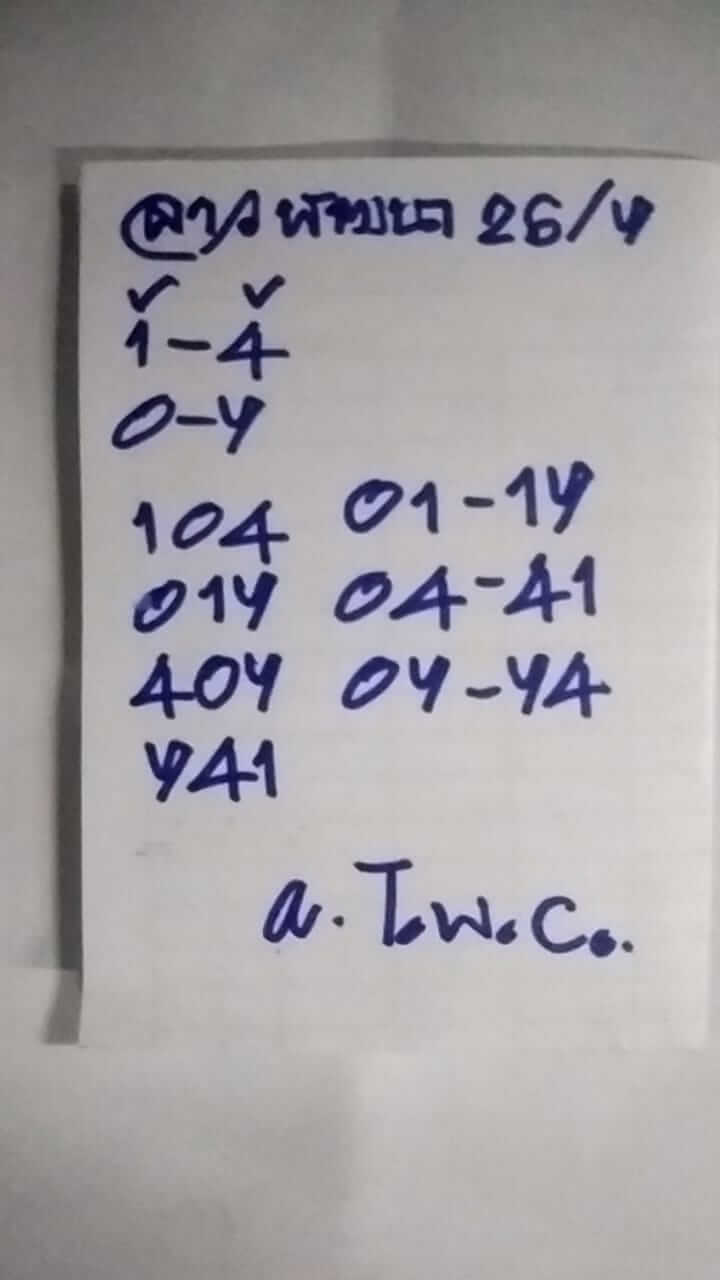 ลาวพัฒนา 26/7
1-4
0-7
104 01-17
017 04-41
407 07-74
741
a. T.w.c..